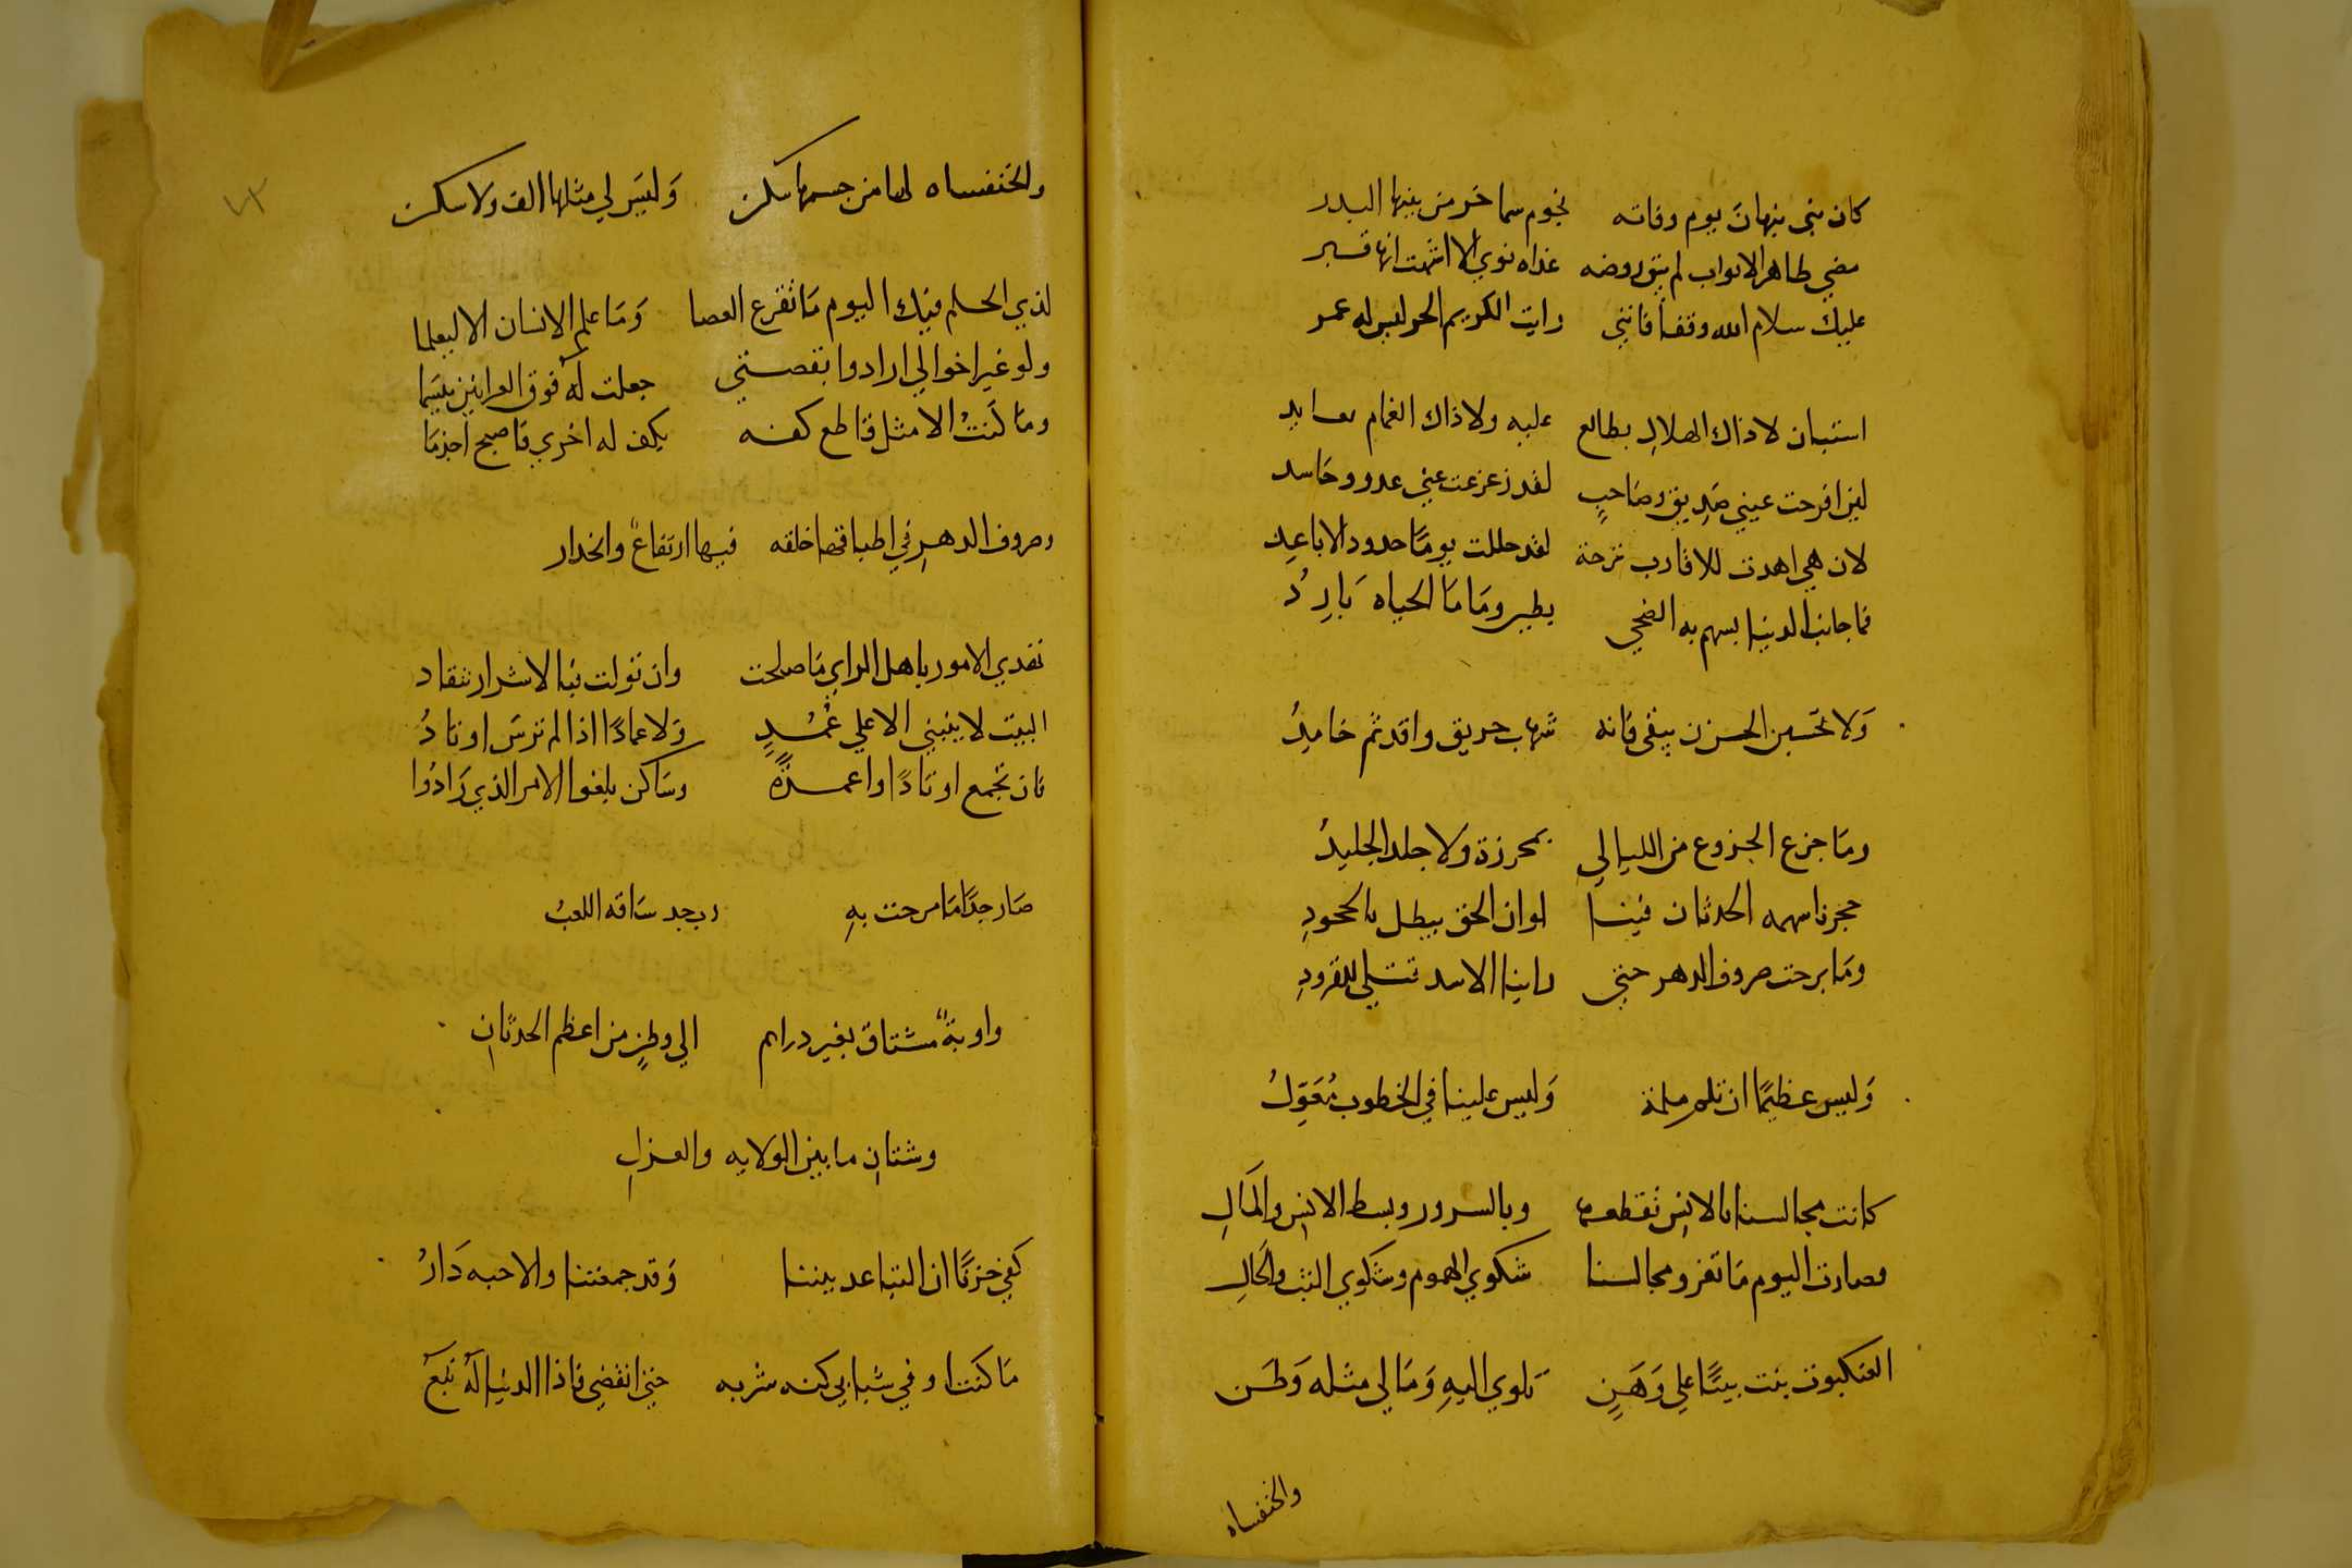 كان بني نبهان يوم وفاته نجوم سما خر من بينها البدر
مضي طاهر الاثواب لم يبق روضه غداه ثوي الا اشتهت انها قبر
عليك سلام الله وقفا فانني رايت الكريم الحر ليس له عمر
استبان لا ذاك الهلال بطالع عليه ولا ذاك الغمام
لين اقرحت عيني صديق وصاحبٍ لقد زعزعت عني عدو وحاسد
لان هي اهدت للاقارب نزحة لقد حللت يومًا حدود الاباعدِ
فما جانب الدنيا بسهم به الضحي يطير ومَا مَا الحياه بَارِدُ
وَلا تحسبن الحزن يبقي فانه شهاب حريق واقد ثم خامِدُ
ومَا جزع الجزوع من الليالي بمحرزة ولا جلد الجليدُ
جحرنا سهمه الحدثان فينا لو ان الحق يبطل بالجحودِ
ومَا برحت صروف الدهر حتي راينا الاسد تتلي للقرودِ
وَليس عظيمًا ان تلم ملمة وَليس علينا في الخطوب مُعَوّلُ
كانت مجالسنا بالانس نقطعها وبالسرور وبسط الانس والمَالِ
وصارت اليوم مَا تعزو مجالسنا شكوي الهموم وشكوي البث والحَالِ
العنكبوت بنت بيتًا علي وَهَنٍ تاوي اليهِ وَمَا لي مثله وَطَن
والخنفساه
والخنفساه لها من جسمها سكن وَليسَ لي مثلها الف ولا سكن
لذي الحلم فيك اليوم مَا تقرع العصا وَمَا علم الانسان الا ليعلما
ولو غير اخوالي ارادوا نقصتي جعلت لهُ فوق العرانين ميسَمَا
ومَا كنتُ الا مثل قاطع كفه بكف له اخري فاصبح اجذمَا
وصروف الدهرِ في اطباقها خلقه فيها ارتفاعٌ وانحدار
تهدي الامور باهل الراي مَا صلحت وان تولت فبا الاشرار تنقاد
البيت لا يبتني الا علي عُمُدٍ وَلا عمادًا اذا لم ترسَ اوتادُ
فان تجمع اوتادًا واعمدةٌ وسَاكن بلغوا الامر الذي زَادُوا
صَار جدًا مَا مرحت بهِ رب جد سَاقه اللعبُ
واوبةُ مشتاق بغير دراهم الي وطنٍ من اعظم الحدثانِ
وشتان ما بين الولايه والعزلِ
كفي حزنًا ان التباعد بيننا وَقد جمعتنا والاحبه دَارُ
مَا كنت اوفي شبابي كنه شربه حتي انقضي فاذا الدنيا لهُ تبَعُ